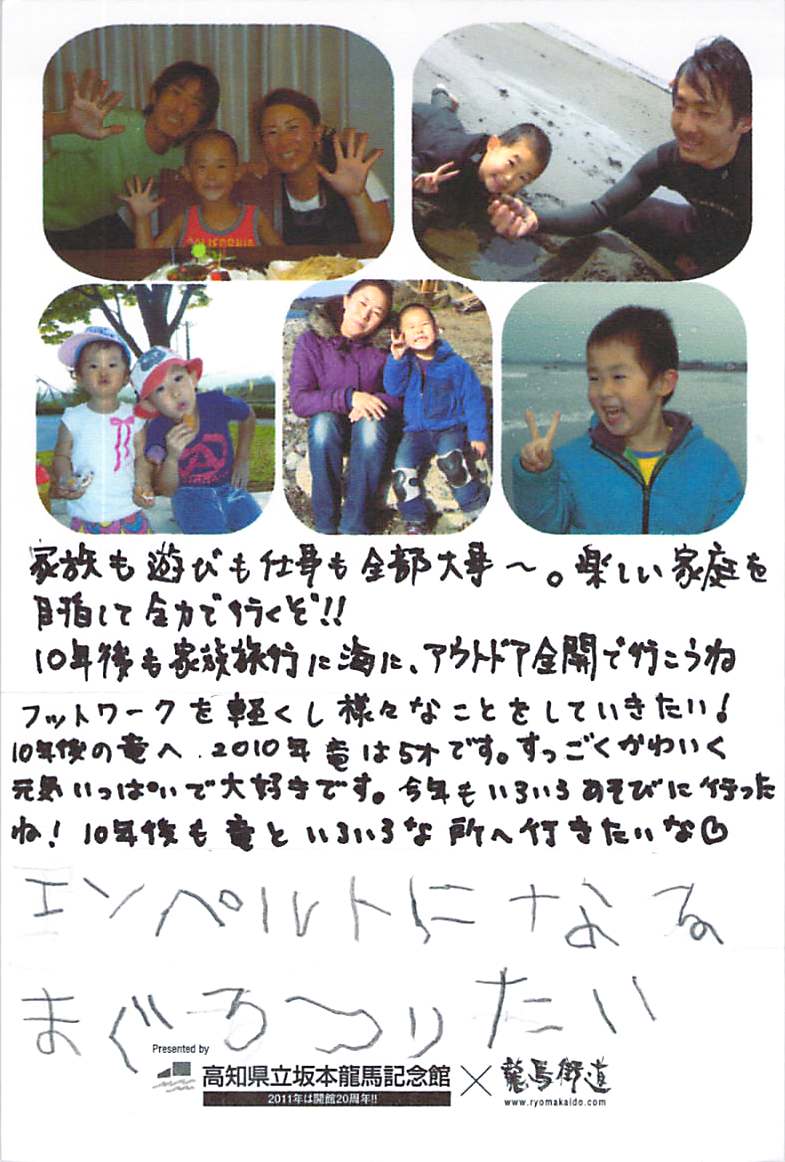 CALIFORNIA
家族も遊びも仕事も全部大事〜。楽しい家庭を
目指して全力で行くぞ!!
10年後も家族旅行に海に、アウトドア全開で行こうね
フットワークを軽くし様々なことをしていきたい!
10年後の竜へ.2010年竜は5才です。すっごくかわいく
元気いっぱいで大好きです。今年もいろいろあそびに行った
ね!10年後も竜といろいろな所へ行きたいな♡
エンペルトになる
まぐろつりたい
Presented by
高知県立坂本龍馬記念館×龍馬街道
2011年は開館20周年!!
www.ryomakaido.com